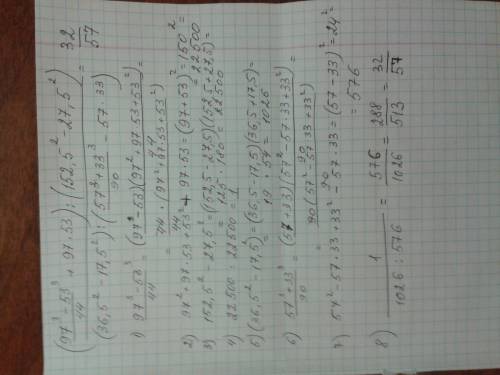 (97³ - 53³ / 44 + 97 · 53) : (152,5² - 27,5²) = 32
(36,5² - 17,5²) : (57³ + 33³ / 90 - 57 · 33) 57
1) 97³ - 53³ / 44 = (97 - 53)(97² + 97·53 + 53²) / 44 =
= 44 · (97² + 97·53 + 53²) / 44
2) 97² + 97·53 + 53² + 97·53 = (97 + 53)² = 150² =
= 22500
3) 152,5² - 27,5² = (152,5 - 27,5)(152,5 + 27,5) =
= 125 · 180 = 22500
4) 22500 : 22500 = 1
5) (36,5² - 17,5²) = (36,5 - 17,5)(36,5 + 17,5) =
= 19 · 54 = 1026
6) 57³ + 33³ / 90 = (57 + 33)(57² - 57·33 + 33²) / 90 =
= 90 (57² - 57·33 + 33²) / 90
7) 57² - 57·33 + 33² - 57·33 = (57 - 33)² = 24² =
= 576
8) 1 / 1026 : 576 = 576 / 1026 = 288 / 513 = 32 / 57